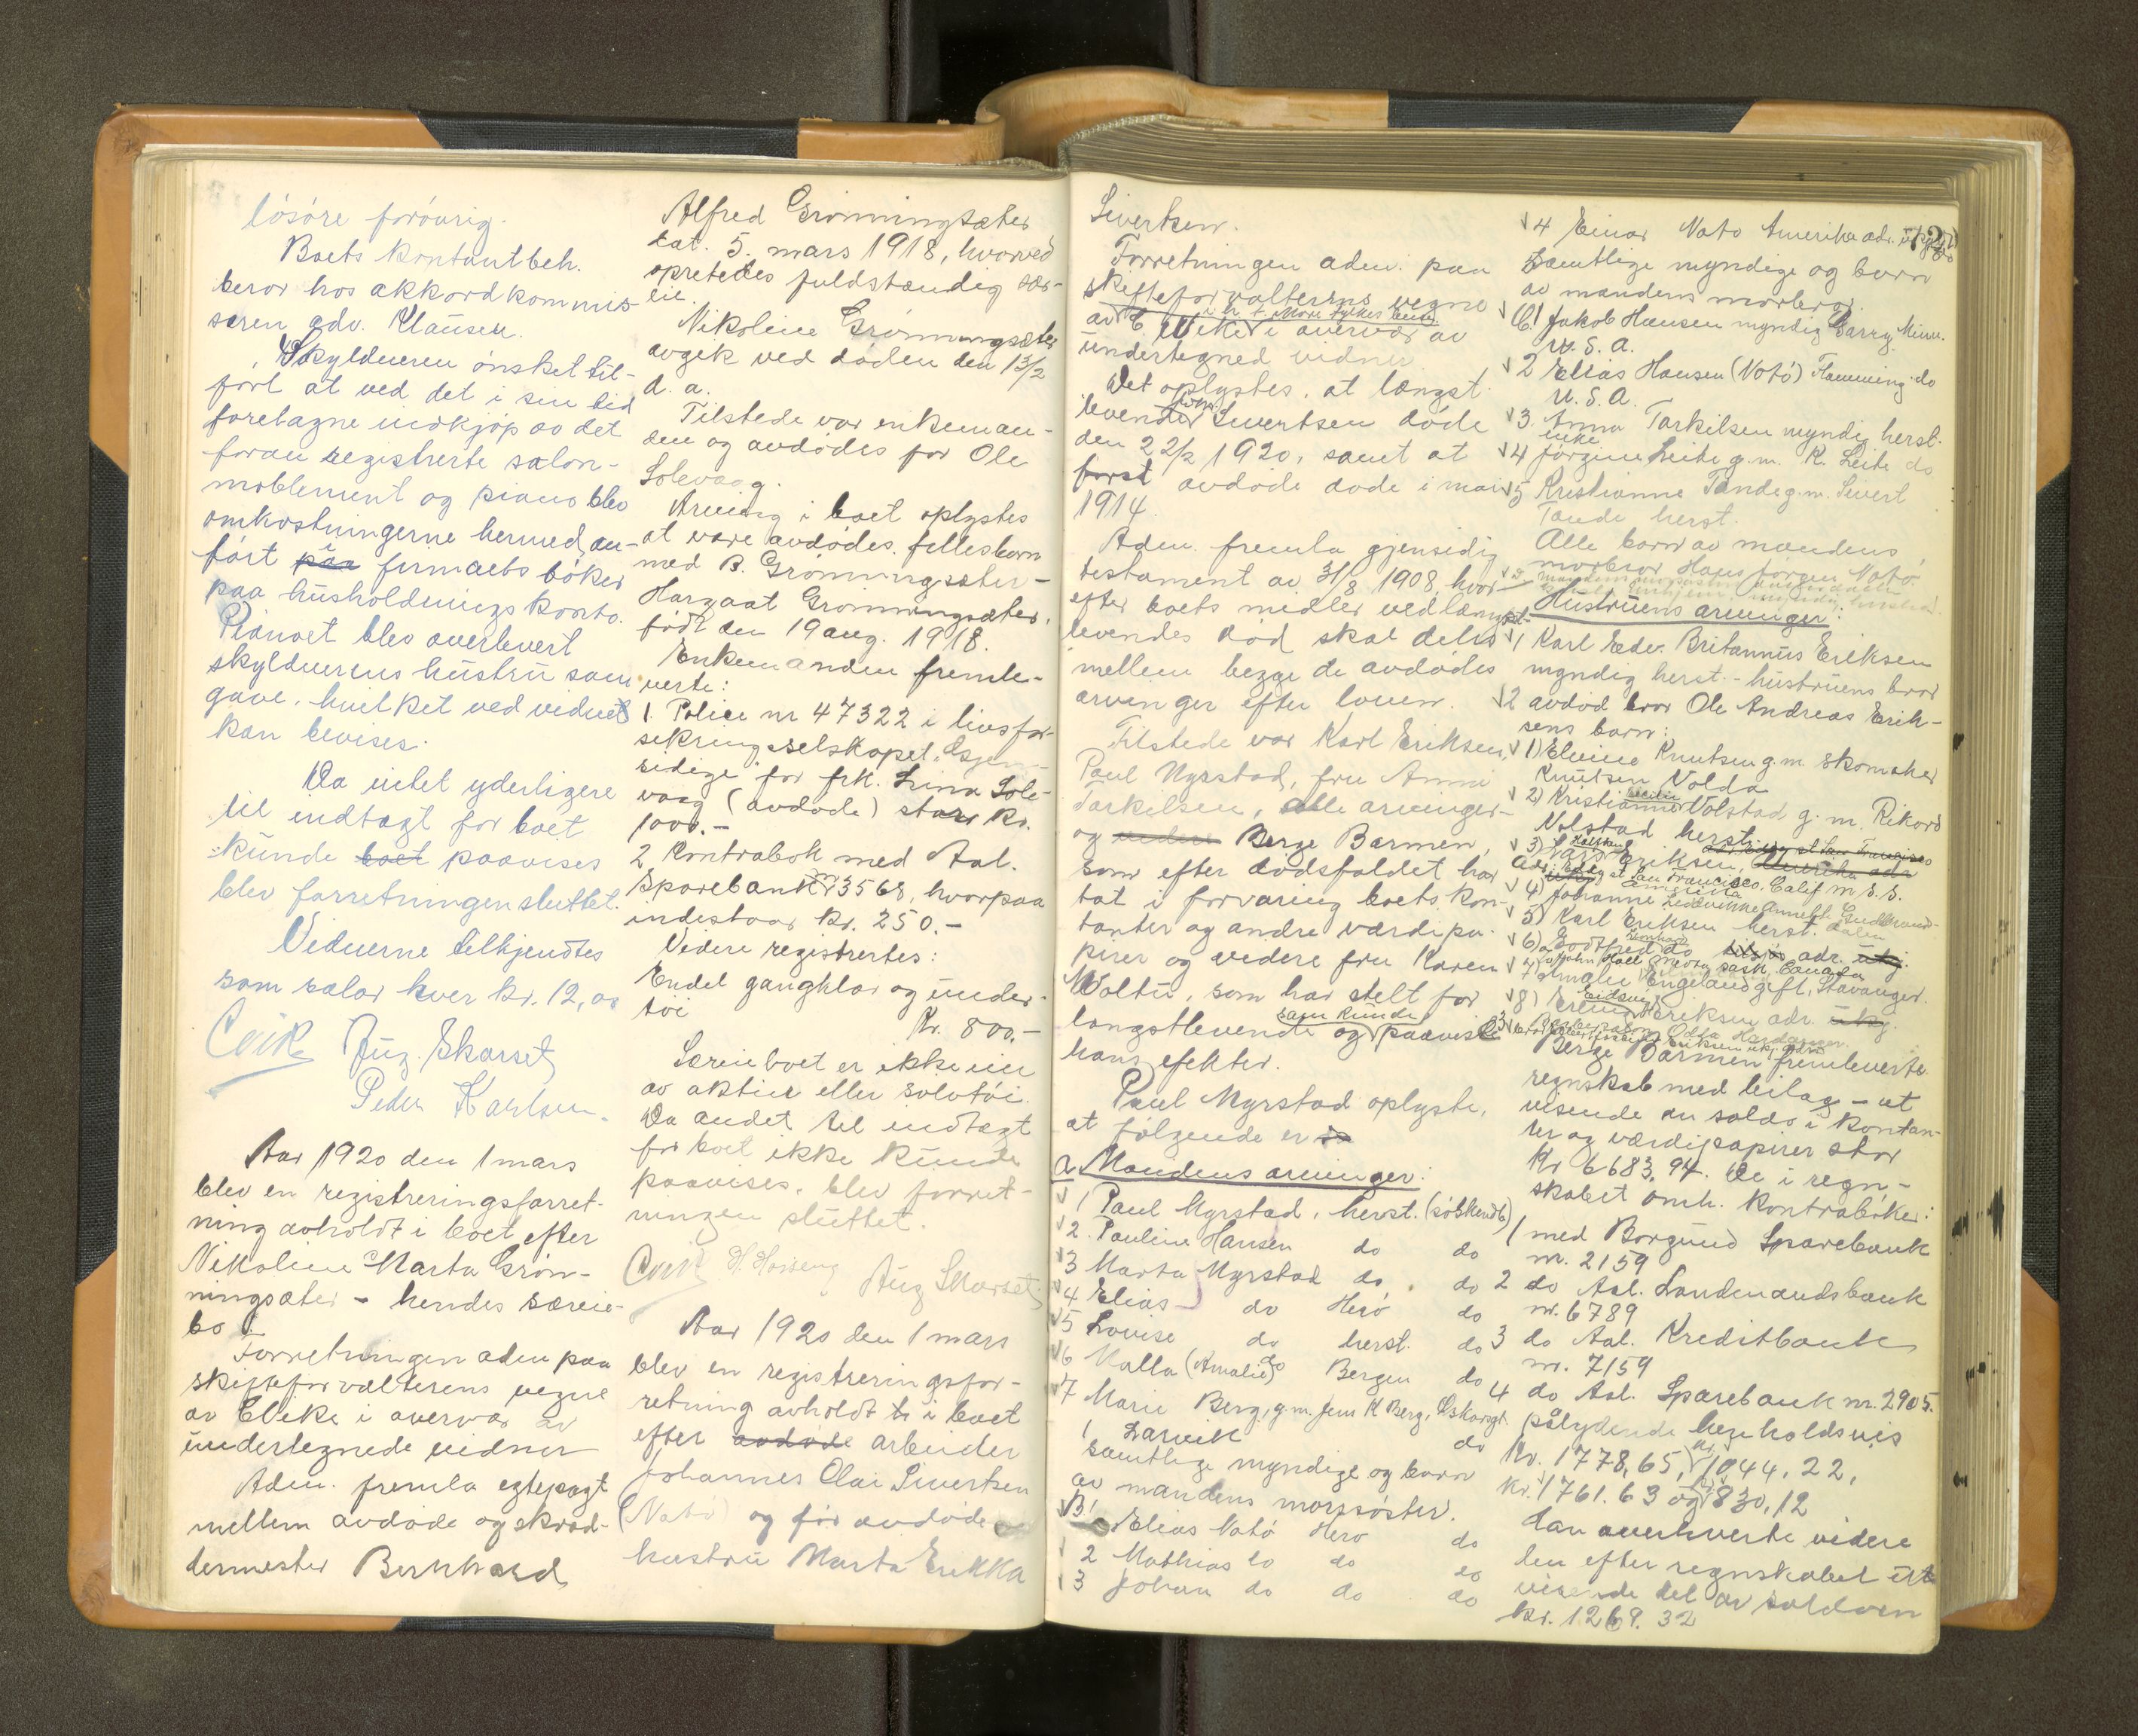 løsøre forøvrig.
Boets kontantbeh.
beror hos akkordkommis-
særen adv. Klausen.
Skylderen ønsket til-
ført at ved det i sin tid
foretagne indkjøp av det
foran registrerte salon-
moblement og piano blev
omkostningerne hermed an-
ført paa i firmaets bøker
paa husholdnings konto.
Pianoet blev overlevert
skyldnerens hustru som
gave, hvilket ved vidner
kan bevises.
Da intet yderligere
til indtægt for boet
kunde boet paavises
blev forretningen sluttet.
Vidnerne tilkjendtes
som salar hver kr. 12,00
Aug. Skarset
Peder Karlsen.
Aar 1920 den 1 mars
blev en registreringsforret-
ning avholdt i boet efter
Nikoline Marta Grøn-
ningsæter - hendes særeie-
bo
Forretningen adm paa
skifteforvalterens vegne
av C Vike i overvær av
undertegnede vidner
Adm. fremla egtepagt
mellem avdøde og skræd-
dermester Bernhard
Alfred Grønningsæter
dat. 5. mars 1918, hvorved
oprettedes fuldstændig sær-
eie.
Nikoline Grønningsæter
avgik ved døden den 13/2
d. a.
Tilstede var enkeman-
den og avdødes far Ole
Solevaag.
Arving i boet oplystes
at være avdødes fellesbarn
med B. Grønningsæter -
Hargaat Grønningsæter,
født den 19 aug. 1918.
Enkemanden fremle-
verte:
1. Police nr 47322 i livsfor-
sikringsselskapet "Gjen-
sidige" for frk. Lina Sole-
vaag (avdøde) stor kr.
1000.-
2 Kontrabok med Aal.
Sparebank nr 3568, hvorpaa
indestaar kr. 250.-
Videre registrertes:
Endel gangklær og under-
tøi
Kr. 800.-
Særeieboet er ikke eier
av aktier eller sølvtøi.
Da andet til indtægt
for boet ikke kunde
paavises, blev forret-
ningen sluttet.
Aug Skarset
Aar 1920 den 1 mars
blev en registreringsfor-
retning avholdt i boet
efter avdøde arbeider
Johannes Olai Sivertsen
(Natø) og før avdøde
hustru Marta Erikka
Sivertsen.
Forretningen adm. paa
skifteforvalterens vegne
av C. Vike i overvær av
undertegned vidner
Det oplystes, at længst
levende Joh. Sivertsen døde
den 22/2 1920, samt at
først avdøde døde i mai
1914.
Adm. fremla gjensidig
testament av 31/8 1908, hvor-
efter boets midler ved længst-
levendes død skal deles
mellem begge de avdødes
arvinger efter loven.
Tilstede var Karl Eriksen,
Paul Myrstad, fru Anni
Torkilsen, alle arvinger -
og videre Berge Barmen,
som efter dødsfaldet har
tat i forvaring boets kon-
tanter og andre værdipa-
pirer og videre fru Karen
Woltu, som har stelt for
længstlevende og som kunde paavise
hans efekter.
Paul Myrstad oplyste,
at følgende er
A Mandens arvinger:
1 Paul Myrstad, herst. (søskend b)
2. Pauline Hansen do do
3 Marta Myrstad do. do
4 Elias - do Herø do
5 Lovise do herst. do
6 Malla (Amalie) do Bergen do
7 Marie Berg, g.m. Jens K Berg,
Larvik do
Samtlige myndige og barn
av mandens morsøster.
B 1 Elias Natø Herø do
2 Mathias do do do
3 Johan do do do
4 Einar Natø Amerika adr.
Samtlige myndige og barn
av mandens morbror.
C 1 Jakob Hansen myndig Garry Minn.
U. S. A.
2 Elias Hansen (Natø) Flamming do
U. S. A.
3. Anna Torkilsen myndig herst.
enke
4 Jørgine Leite g.m. K. Leite do
5 Kristianne Tande g.m. Sivert
Tande herst.
Alle barn av mandens
morbror Hans Jørgen Natø.
Hustruens arvinger:
1 Karl Edv. Britannus Eriksen
myndig herst. - hustruens bror
2 avdød bror Ole Andreas Erik-
sens barn:
1) Eline Knutsen g.m skomaker
Knutsen Volda
2) Kristianne Volstad g. m. Rikard
Volstad herst.
3) Lars Eriksen Amerika adr
San Francisco. Calif
4) Johanne
5) Karl Eriksen herst.
6) Godtfred do adr. ukj.
Canada
7) Amalie Engeland gift, Stavanger.
8) Erling Eriksen adr. ukj.
Odda Hardanger.
Berge Barmen fremleverte
regnskab med bilag - ut
visende en saldo i kontan-
ter og værdipapirer stor
Kr 6683,94. De i regn-
skabet omh. kontrabøker:
1 med Borgund Sparebank
nr. 2159
2 do Aal. Landmandsbank
nr. 6789
3 do Aal. Kreditbank
nr. 7159
4 do Aal. Sparebank nr. 2905.
pålydende henholdsvis
Kr. 1778,65, kr. 1044,22,
kr. 1761.63 og kr 830,12
Han overleverte videre
den efter regnskabet ut
visende del av saldoen
kr. 1269.32